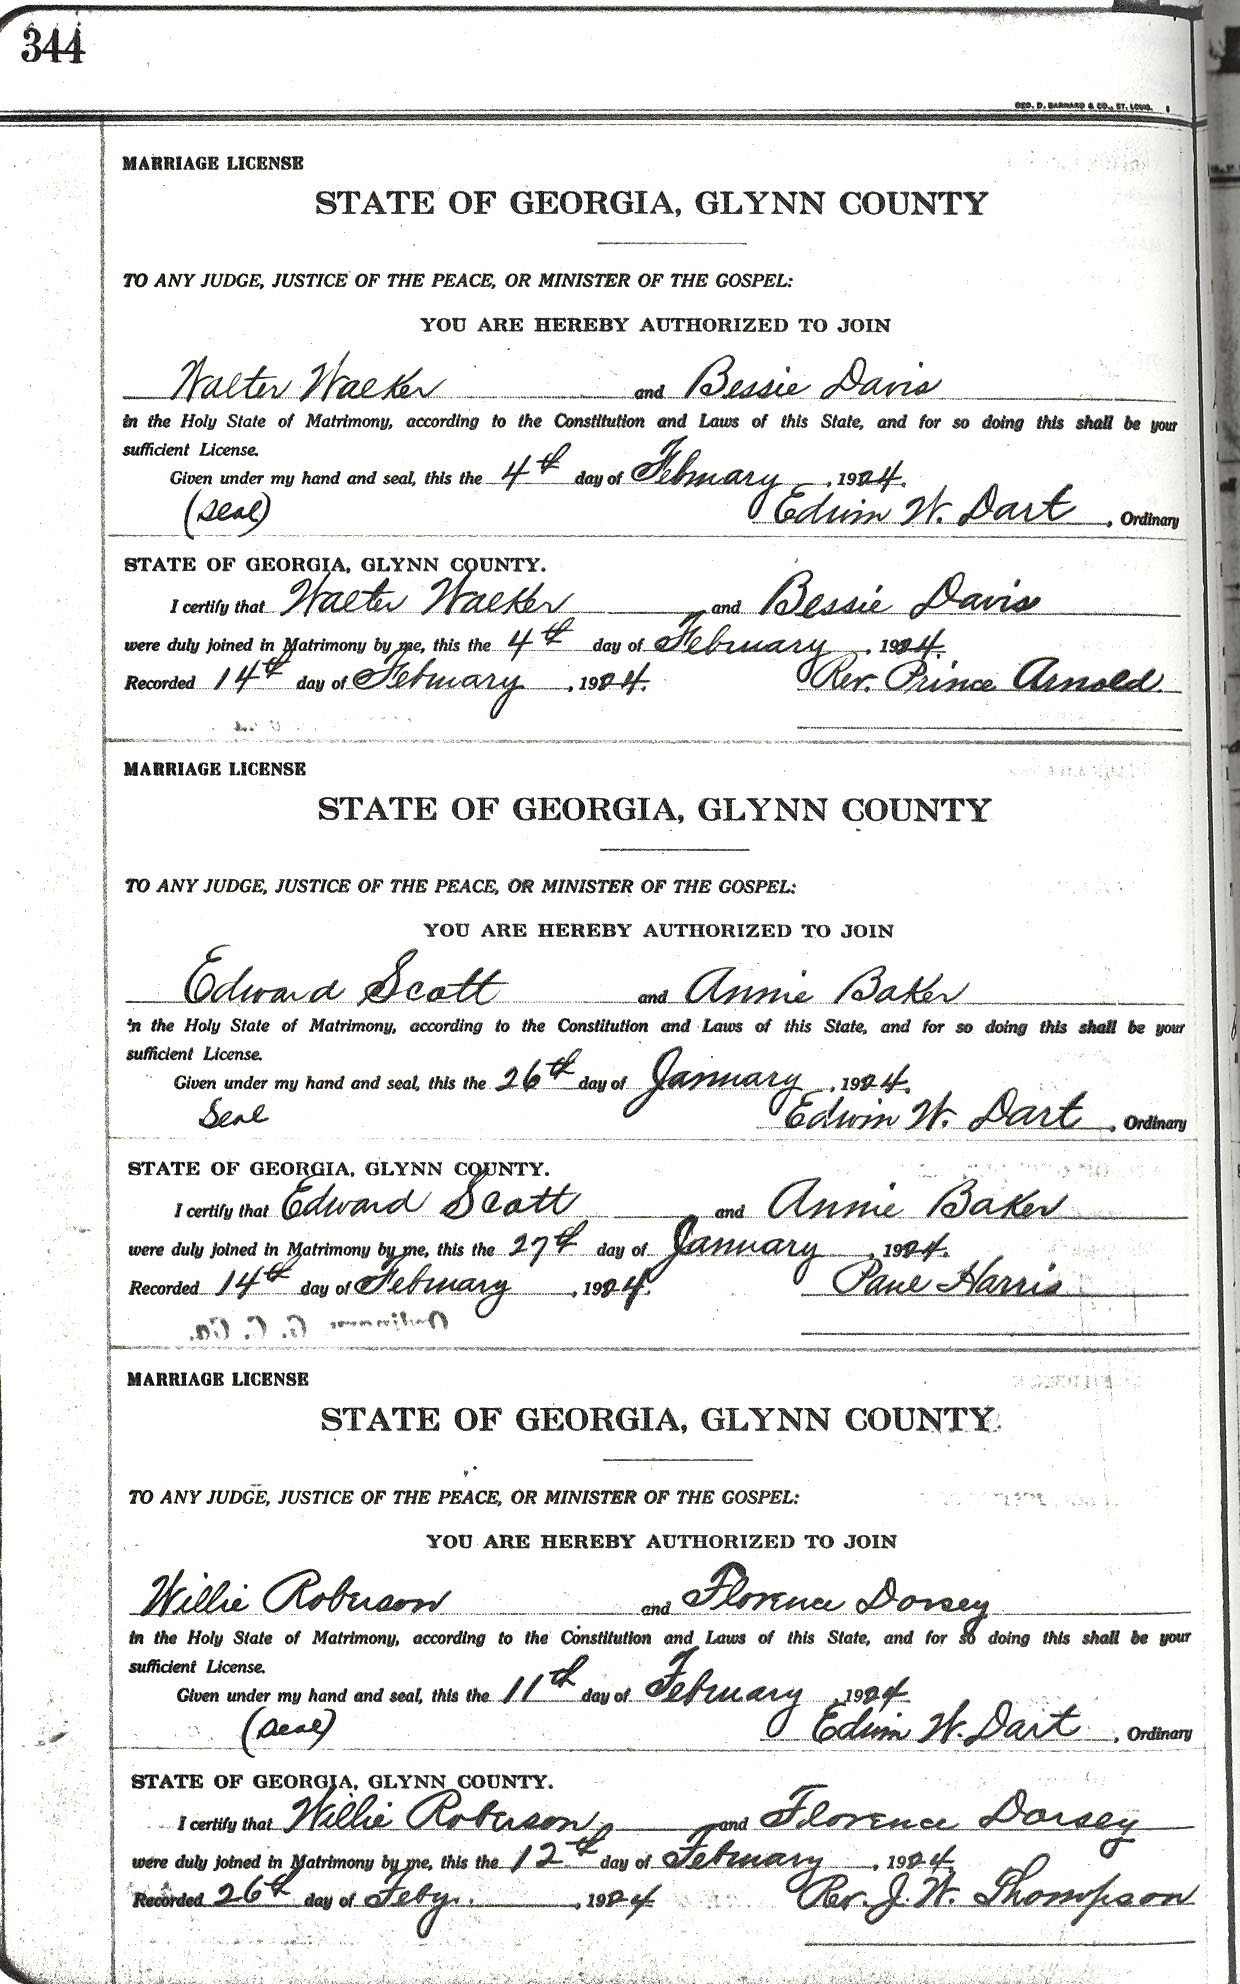 344
GEO. D. BARNARD & CO., ST. LOUIS.
MARRIAGE LICENSE
STATE OF GEORGIA, GLYNN COUNTY
TO ANY JUDGE, JUSTICE OF THE PEACE, OR MINISTER OF THE GOSPEL:
YOU ARE HEREBY AUTHORIZED TO JOIN
Walter Walker and Bessie Davis
in the Holy State of Matrimony, according to the Constitution and Laws of this State, and for so doing this shall be your
sufficient License.
Given under my hand and seal, this the 4th day of February, 1924.
(Seal) Edwin W. Dart, Ordinary
STATE OF GEORGIA, GLYNN COUNTY.
I certify that Walter Walker and Bessie Davis
were duly joined in Matrimony by me, this the 4th day of February, 1924.
Recorded 14th day of February, 1924. Rev. Prince Arnold
MARRIAGE LICENSE
STATE OF GEORGIA, GLYNN COUNTY
TO ANY JUDGE, JUSTICE OF THE PEACE, OR MINISTER OF THE GOSPEL:
YOU ARE HEREBY AUTHORIZED TO JOIN
Edward Scott and Annie Baker
in the Holy State of Matrimony, according to the Constitution and Laws of this State, and for so doing this shall be your
sufficient License.
Given under my hand and seal, this the 26th day of January, 1924.
Seal Edwin W. Dart, Ordinary
STATE OF GEORGIA, GLYNN COUNTY.
I certify that Edward Scott and Annie Baker
were duly joined in Matrimony by me, this the 27th day of January, 1924.
Recorded 14th day of February, 1924. Paul Harris
MARRIAGE LICENSE
STATE OF GEORGIA, GLYNN COUNTY
TO ANY JUDGE, JUSTICE OF THE PEACE, OR MINISTER OF THE GOSPEL:
YOU ARE HEREBY AUTHORIZED TO JOIN
Willie Roberson and Florence Dorsey
in the Holy State of Matrimony, according to the Constitution and Laws of this State, and for so doing this shall be your
sufficient License.
Given under my hand and seal, this the 11th day of February, 1924
(Seal) Edwin W. Dart, Ordinary
STATE OF GEORGIA, GLYNN COUNTY.
I certify that Willie Roberson and Florence Dorsey
were duly joined in Matrimony by me, this the 12th day of February, 1924.
Recorded 26th day of Feby., 1924 Rev. J. W. Thompson